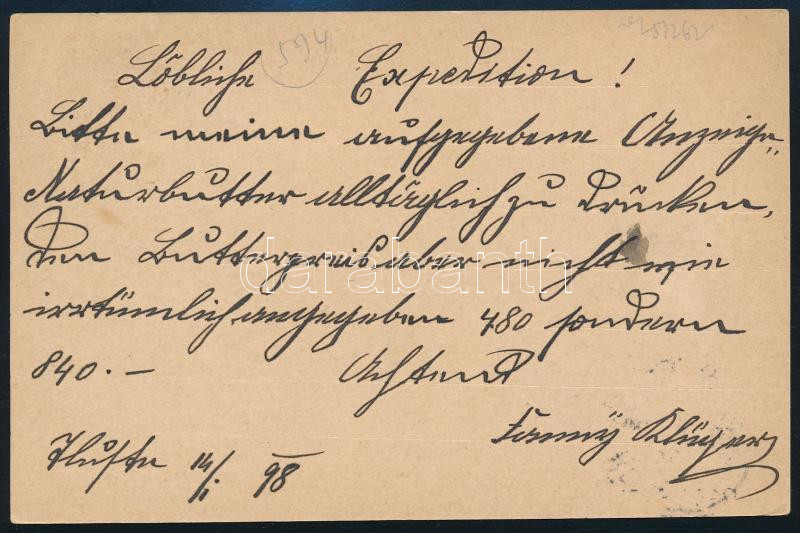 594
Löbliche Expedition!
Bitte meine aufgegebene Anzeige „
Naturbutter alltäglich zu drücken,
den Butterpreis aber nicht wie
irrtümlich angegeben 480 sondern
840.–
Achtend
Fanny Klüger
Tluste 14/I 98
darabanth